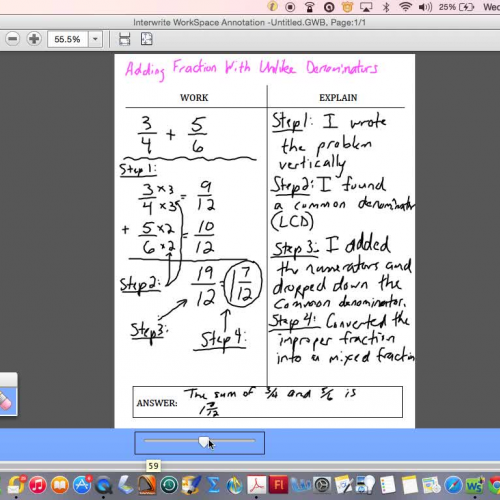 25% Wed
Interwrite WorkSpace Annotation -Untitled.GWB, Page:1/1
55.5%
Adding Fraction With Unlike Denominators
WORK EXPLAIN
3/4 + 5/6
Step 1:
3×3/4×3 = 9/12
+ 5×2/6×2 = 10/12
Step2: 19/12 = 1 7/12
Step3:
Step 4:
Step1: I wrote
the problem
vertically
Step2: I found
a common denominator
(LCD)
Step 3: I added
the numerators and
dropped down the
common denominator.
Step 4: Converted the
improper fraction
into a mixed fraction
ANSWER: The sum of 3/4 and 5/6 is
1 7/12
59